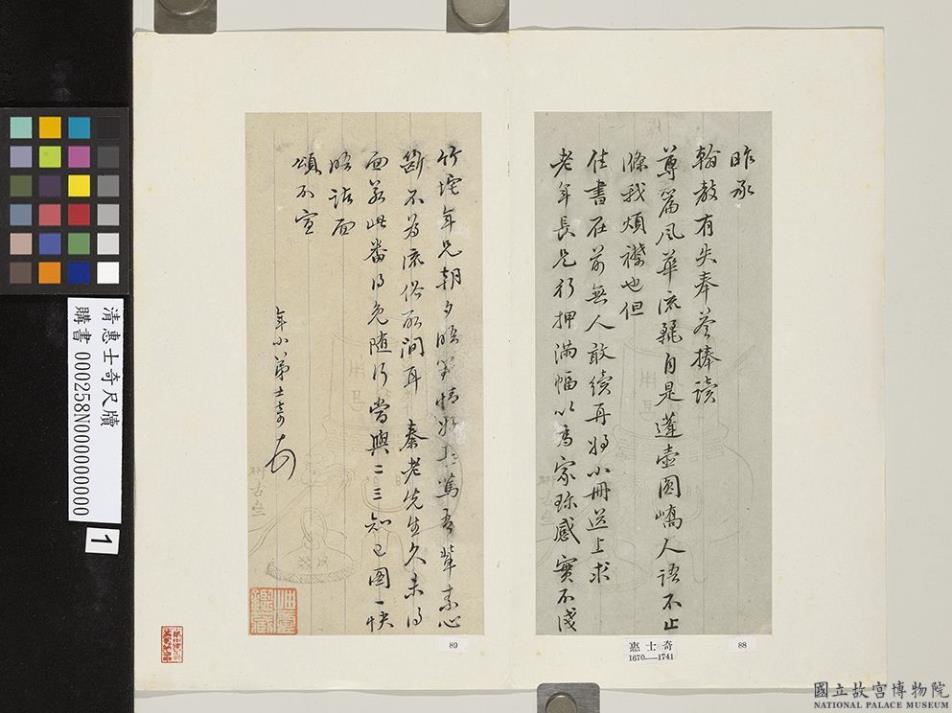 昨承
翰教有失奉答捧讀
尊篇風華流麗自是蓬壺圓嶠人語不止
滌我煩襟也但
佳書在前無人敢續再將小冊送上求
老年長兄行押滿幅以為家珍感實不淺
竹垞年兄朝夕晤對情好益篤吾輩素心
斷不為流俗所間耳 秦老先生久未得
面若此番得免隨行當與二三知己圖一快
晤諸面
頌不宣
年小弟士奇
惠士奇
1670—1741
88
89
清惠士奇尺牘
購書 000258N000000000
1
國立故宮博物院
NATIONAL PALACE MUSEUM